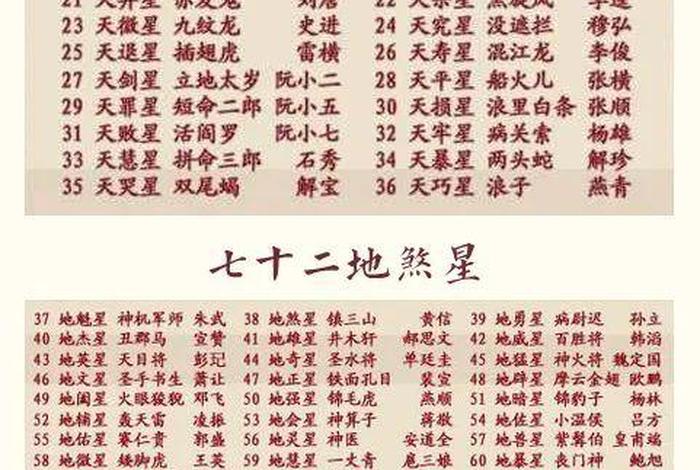 23 天微星 九纹龙 史进 24 天究星 没遮拦 穆弘
25 天退星 插翅虎 雷横 26 天寿星 混江龙 李俊
27 天剑星 立地太岁 阮小二 28 天平星 船火儿 张横
29 天罪星 短命二郎 阮小五 30 天损星 浪里白条 张顺
31 天败星 活阎罗 阮小七 32 天牢星 病关索 杨雄
33 天慧星 拼命三郎 石秀 34 天暴星 两头蛇 解珍
35 天哭星 双尾蝎 解宝 36 天巧星 浪子 燕青
七十二地煞星
37 地魁星 神机军师 朱武 38 地煞星 镇三山 黄信 39 地勇星 病尉迟 孙立
40 地杰星 丑郡马 宣赞 41 地雄星 井木犴 郝思文 42 地威星 百胜将 韩滔
43 地英星 天目将 彭玘 44 地奇星 圣水将 单廷圭 45 地猛星 神火将 魏定国
46 地文星 圣手书生 萧让 47 地正星 铁面孔目 裴宣 48 地辟星 摩云金翅 欧鹏
49 地阖星 火眼狻猊 邓飞 50 地强星 锦毛虎 燕顺 51 地暗星 锦豹子 杨林
52 地辅星 轰天雷 凌振 53 地会星 神算子 蒋敬 54 地佐星 小温侯 吕方
55 地佑星 赛仁贵 郭盛 56 地灵星 神医 安道全 57 地兽星 紫髯伯 皇甫端
58 地微星 矮脚虎 王英 59 地慧星 一丈青 扈三娘 60 地暴星 丧门神 鲍旭